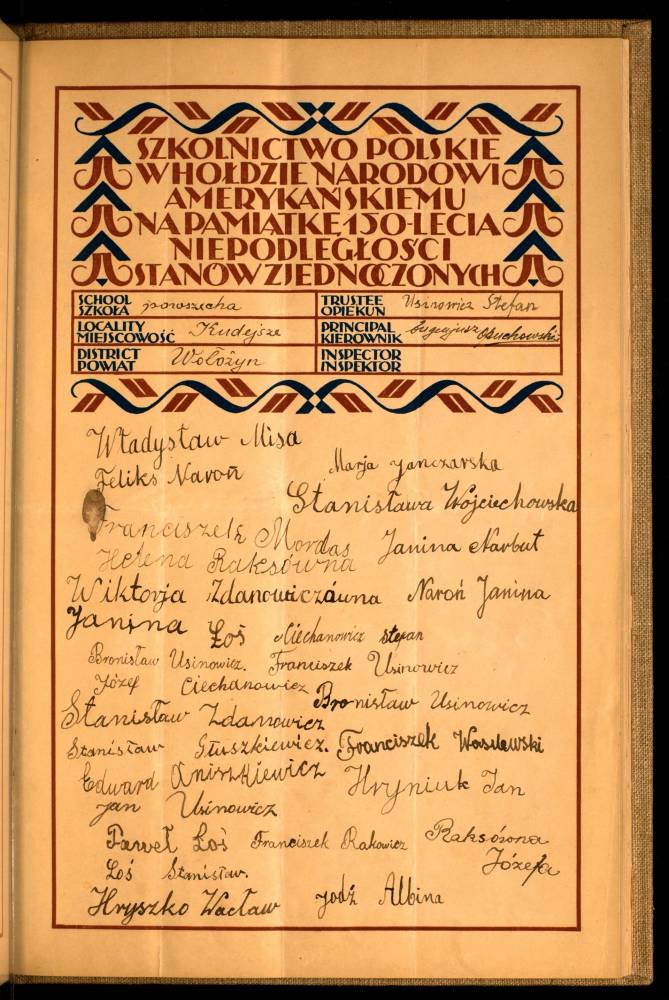 SZKOLNICTWO POLSKIE
W HOŁDZIE NARODOWI
AMERYKAŃSKIEMU
NA PAMIĄTKĘ 150-LECIA
NIEPODLEGŁOŚCI
STANÓW ZJEDNOCZONYCH
SCHOOL SZKOŁA powszechna TRUSTEE OPIEKUN Usinowicz Stefan
LOCALITY MIEJSCOWOŚĆ Kudejsze PRINCIPAL KIEROWNIK Eugenjusz
DISTRICT POWIAT Wołożyn INSPECTOR INSPEKTOR
Władysław Misa
Feliks Naroń Marja Janczarska
Stanisława Wojciechowska
Franciszek Mordas Janina Narbut
Helena Raksówna
Wiktorja Zdanowiczówna Naroń Janina
Janina Łoś Ciechanowicz Stefan
Bronisław Usinowicz. Franciszek Usinowicz
Józef Ciechanowicz Bronisław Usinowicz
Stanisław Zdanowicz
Stanisław Głuszkiewicz. Franciszek Wasilewski
Edward Aniszkiewicz Hryniuk Jan
Jan Usinowicz
Paweł Łoś Franciszek Rakowicz Raksówna
Józefa
Łoś Stanisław.
Hryszko Wacław Jodź Albina